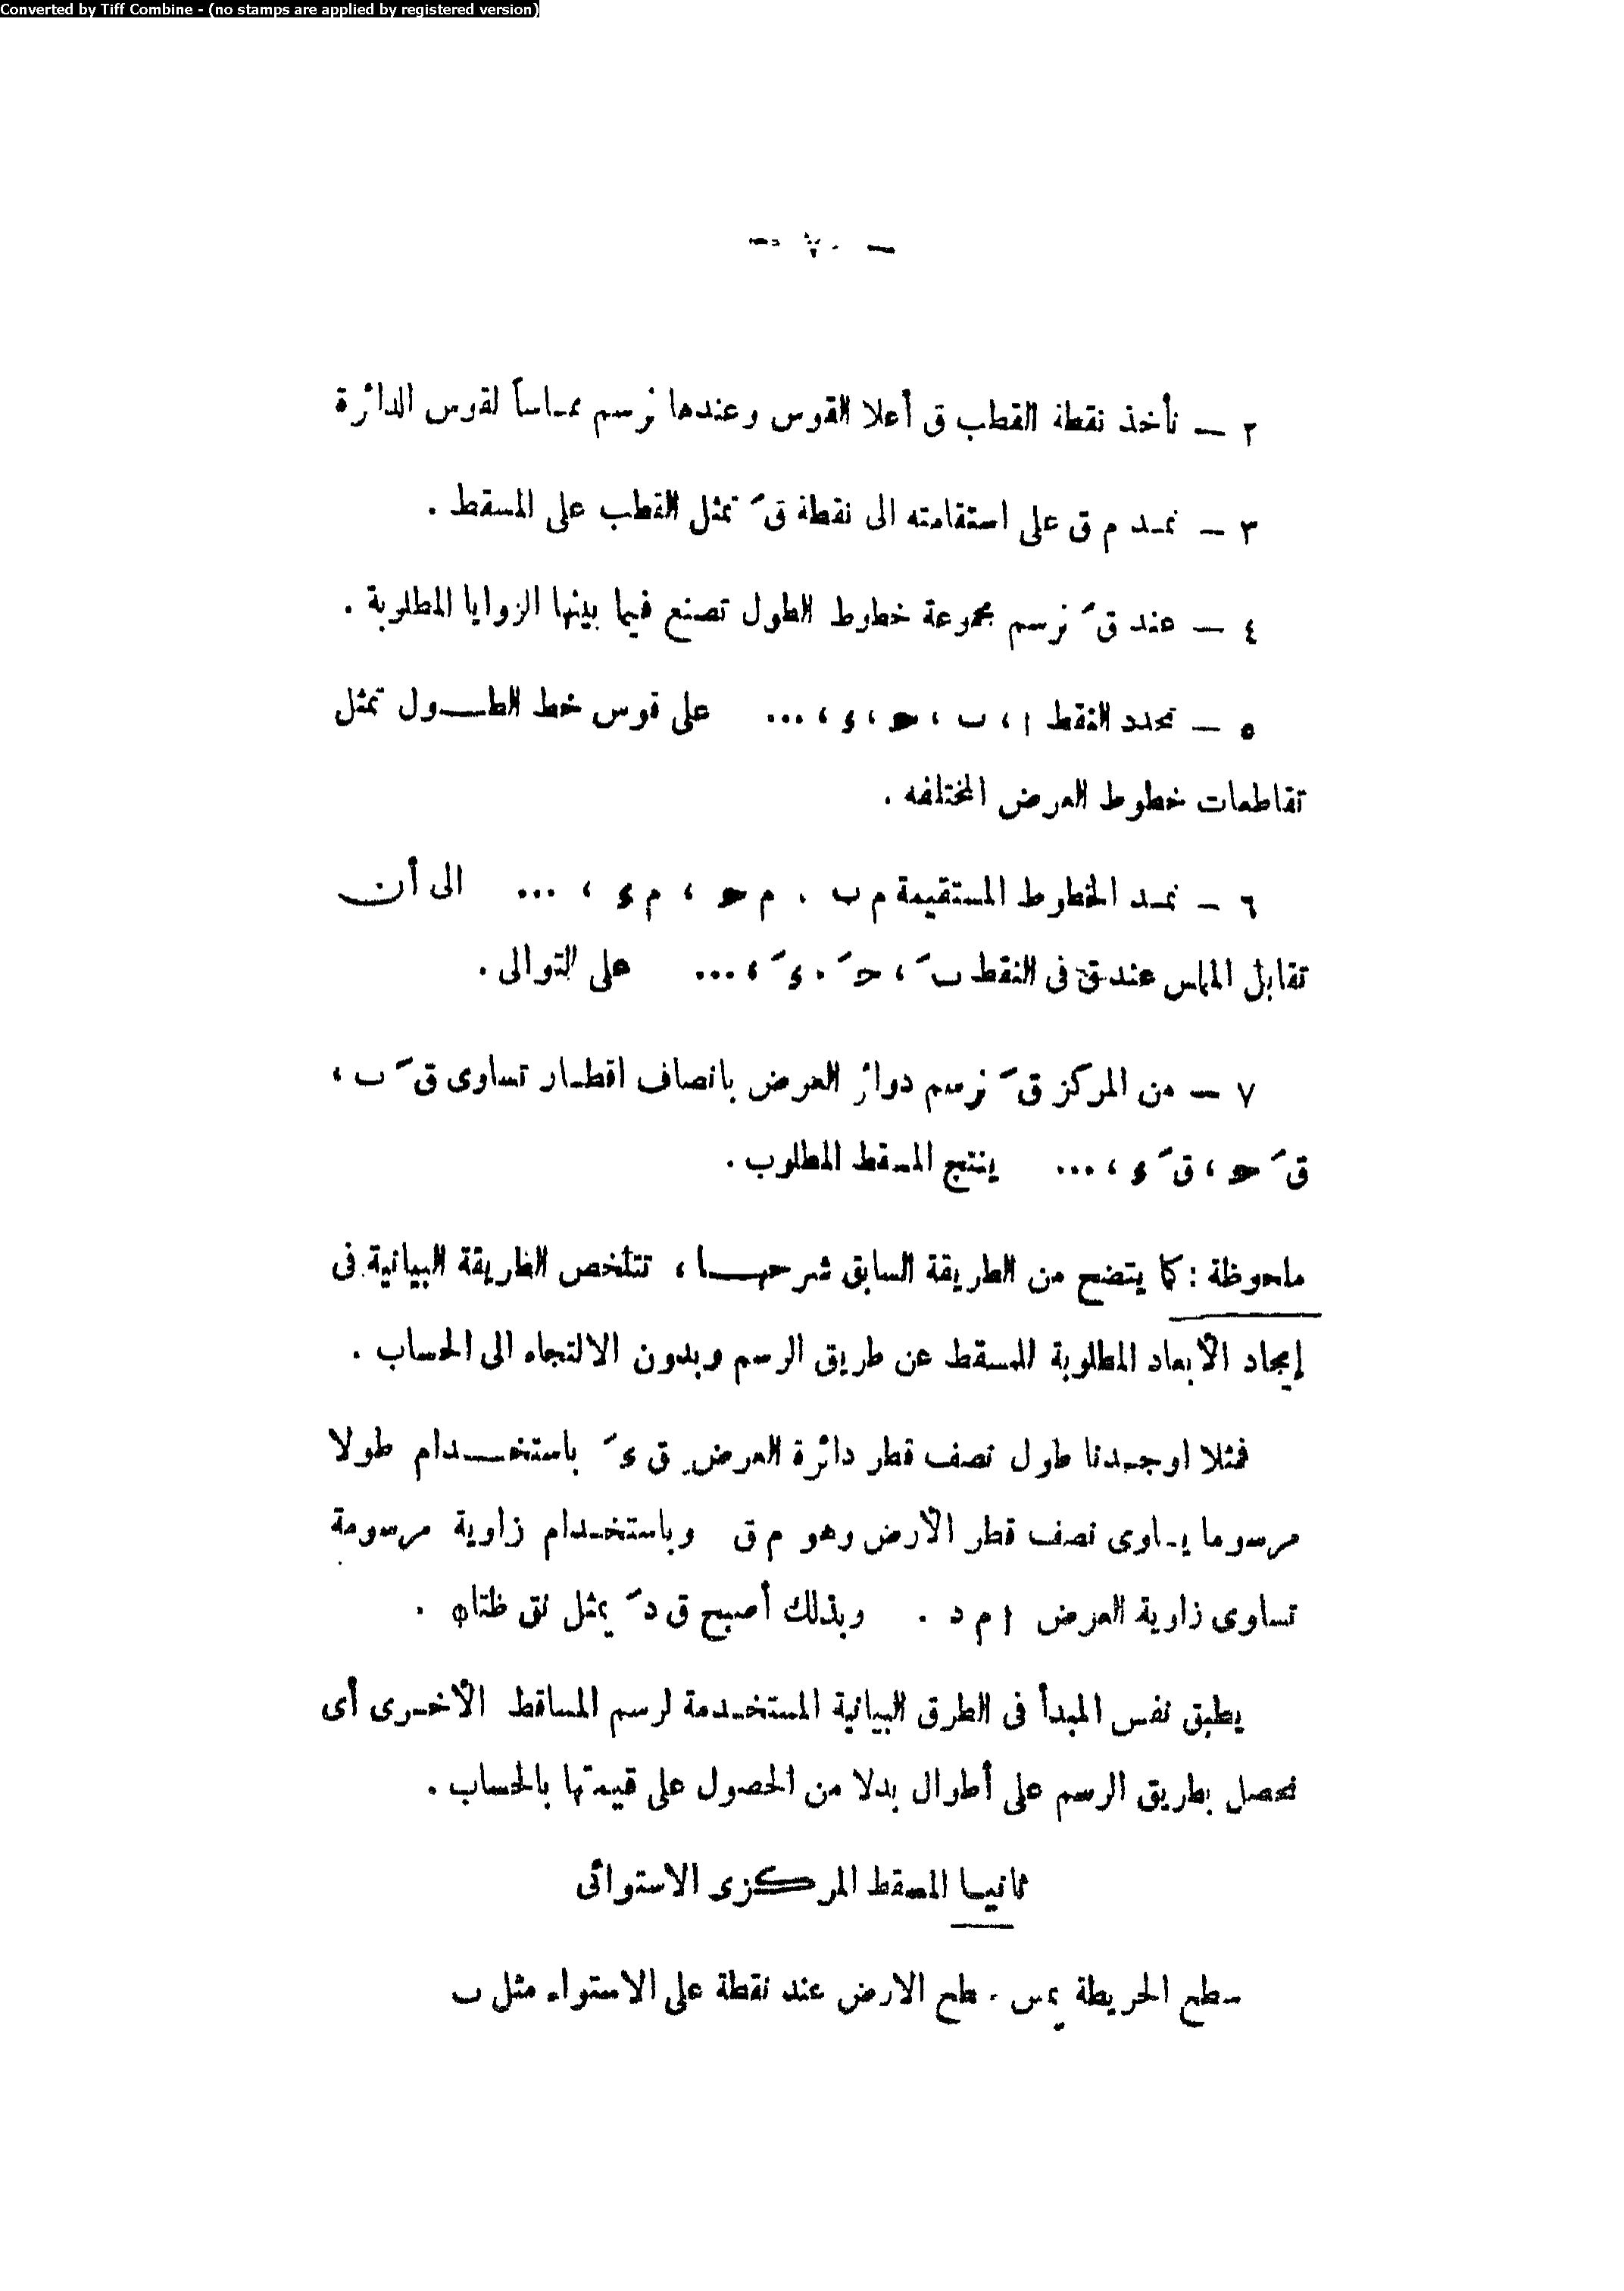 Converted by Tiff Combine - (no stamps are applied by registered version)
— ٧٠ —
٢ — نأخذ نقطة القطب ق أعلا القوس وعندها نرسم مماساً لقوس الدائرة
٣ — نمد م ق على استقامته الى نقطة قَ تمثل القطب على المسقط .
٤ — عند قَ نرسم مجموعة خطوط الطول تصنع فيما بينها الزوايا المطلوبة .
٥ — تحدد النقط ا ، ب ، ح ، ء ، ... على قوس خط الطـــول تمثل
تقاطعات خطوط العرض المختلفه .
٦ — نمد الخطوط المستقيمة م ب . م ح ، م ء ، ... الى أن
تقابل المماس عند ق فى النقط بَ ، حَ . ءَ ، ... على التوالى .
٧ — من المركز قَ نرسم دوائر العرض بانصاف اقطـار تساوى قَ ب ،
قَ ح ، قَ ء ، ... ينتج المسقط المطلوب .
ملحوظة : كما يتضح من الطريقة السابق شرحهـــا ، تتلخص الطريقة البيانية فى
إيجاد الأبعاد المطلوبة للمسقط عن طريق الرسم وبدون الالتجاء الى الحساب .
فمثلا اوجـدنا طول نصف قطر دائرة العرض ق ءَ باستخـــدام طولا
مرسوما يساوى نصف قطر الأرض وهو م ق وباستخـدام زاوية مرسومة
تساوى زاوية العرض ا م د . وبذلك أصبح ق دَ يمثل نق ظتا φ .
يطبق نفس المبدأ فى الطرق البيانية المستخـدمة لرسم المساقط الأخـرى أى
نحصل بطريق الرسم على أطوال بدلا من الحصول على قيمتها بالحساب .
ثانيـا المسقط المركزى الاستوائى
سطح الخريطة يمس سطح الارض عند نقطة على الاستواء مثل ب